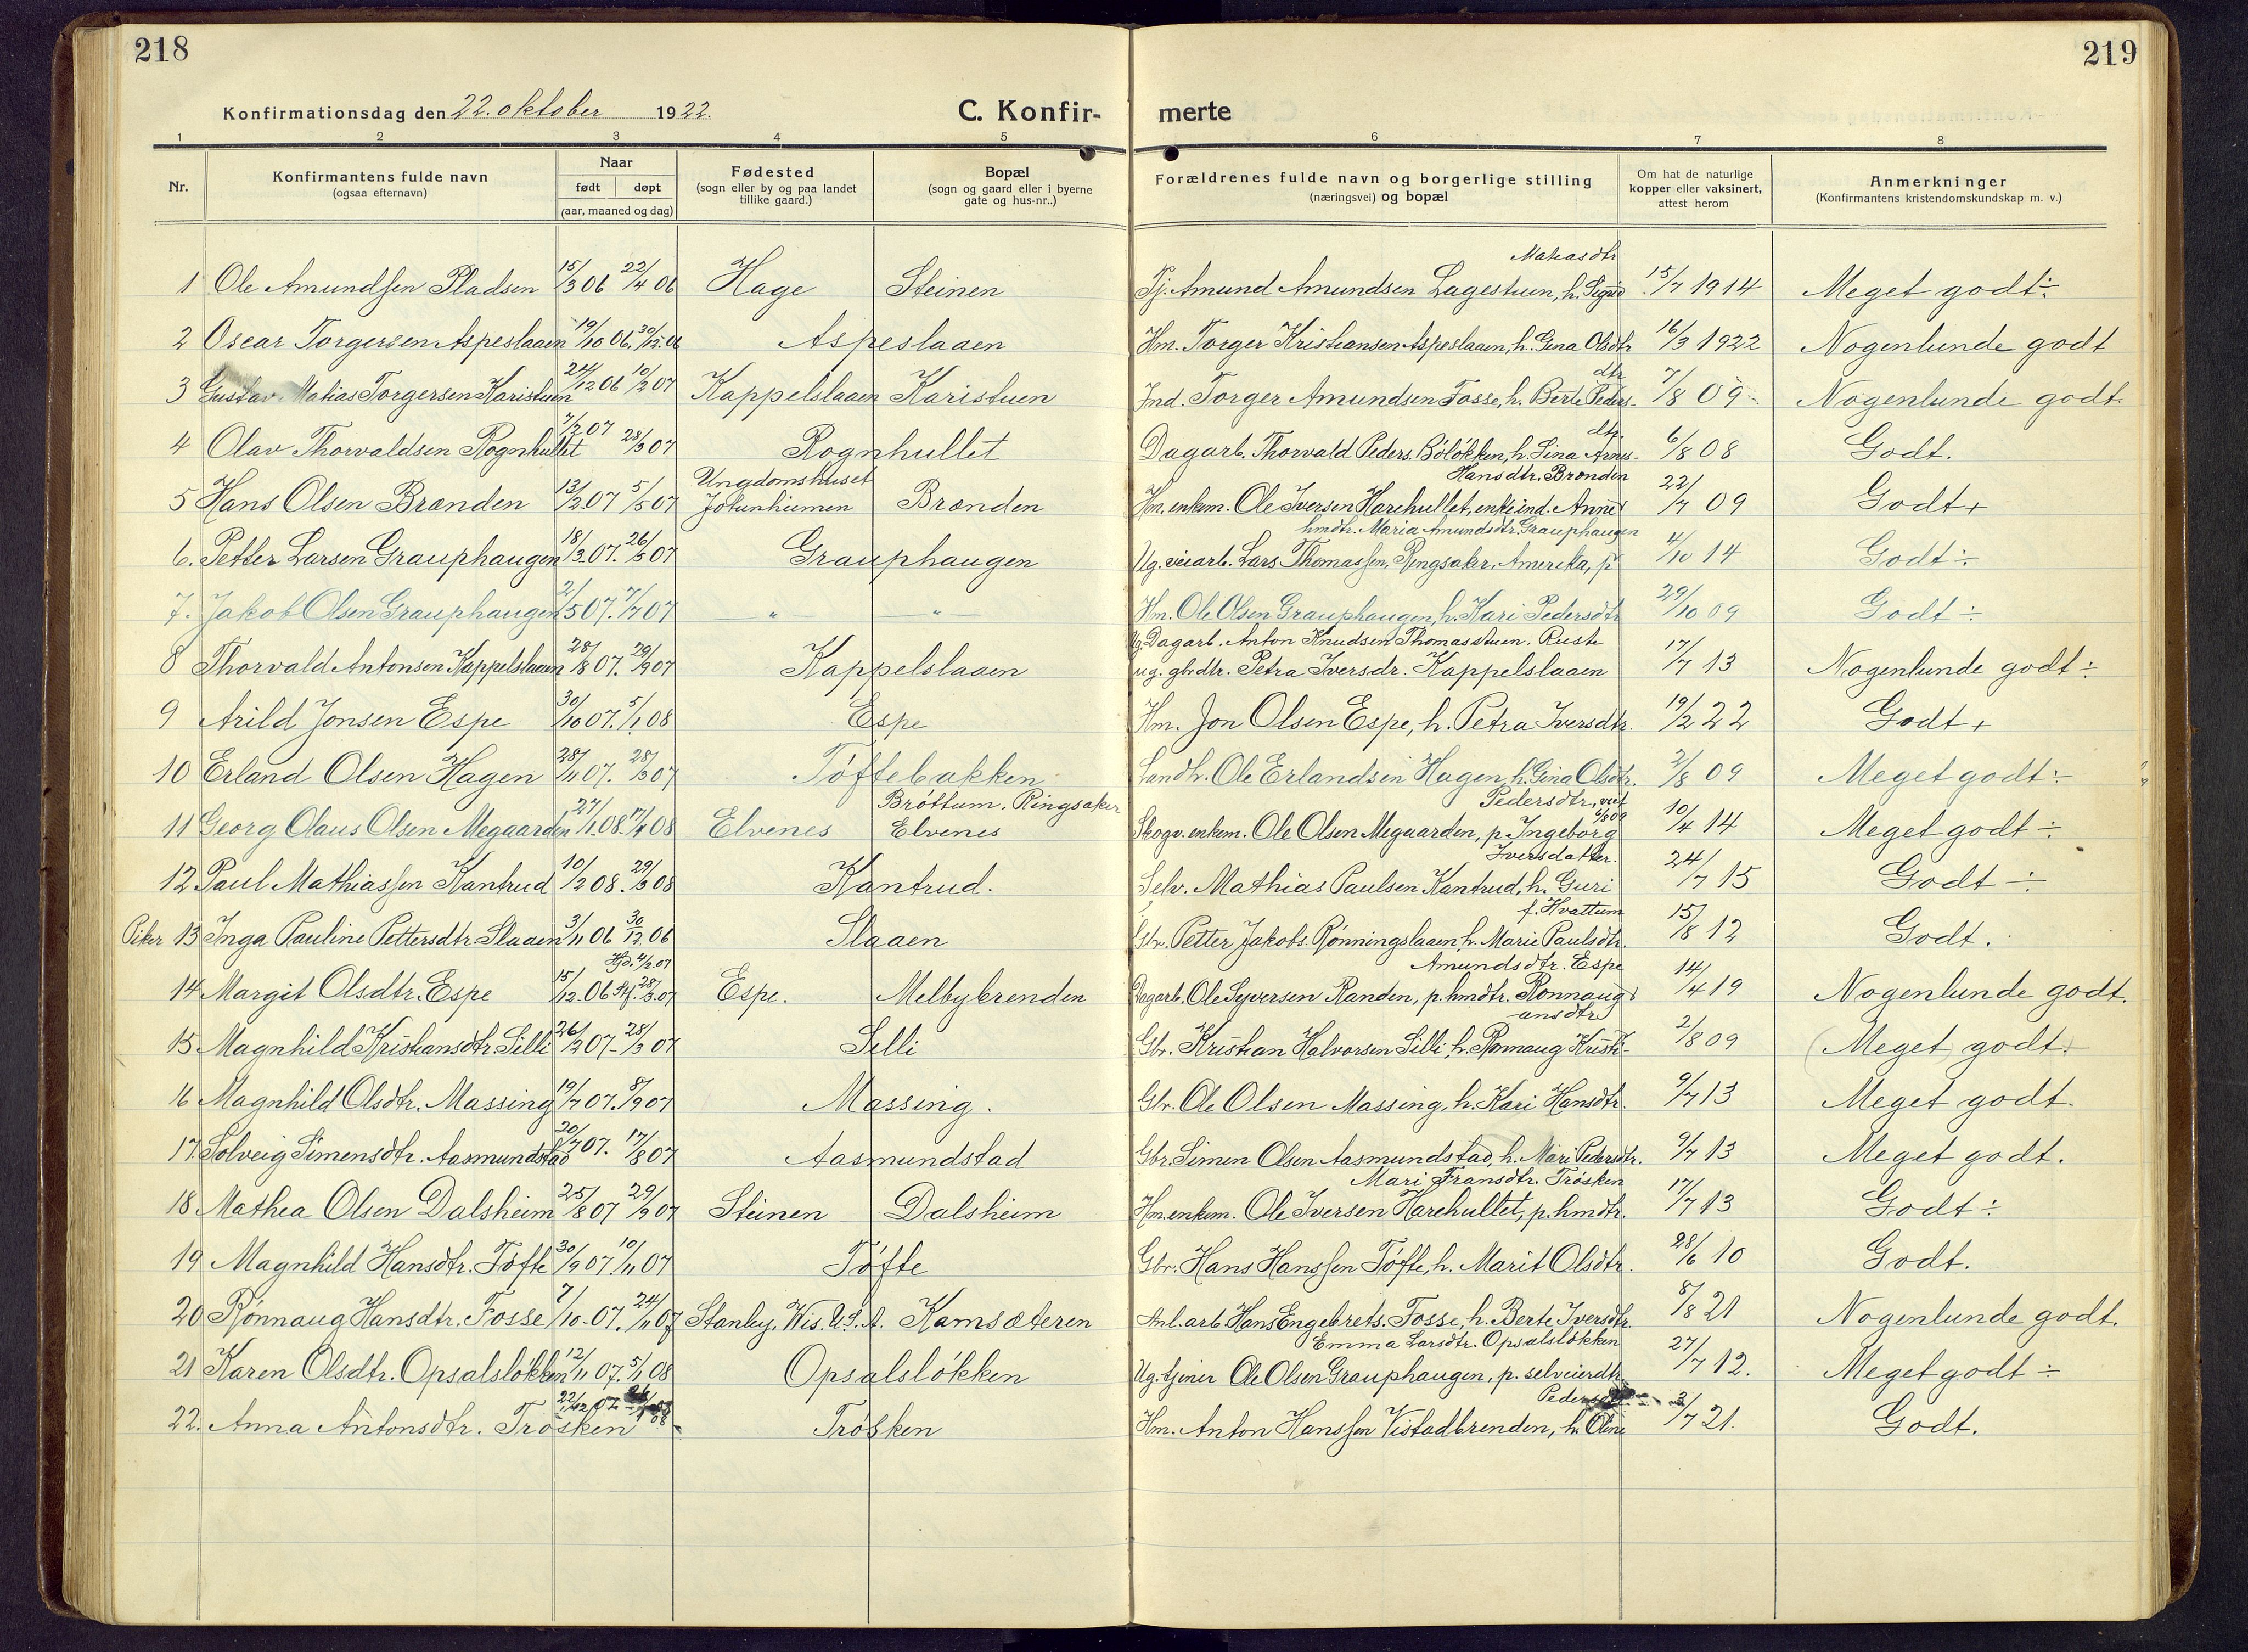 218
219
Konfirmationsdag den 22. oktober 1922.
C. Konfir-
merte
1 2 3 4 5 6 7 8
Nr.
Konfirmantens fulde navn
(ogsaa efternavn)
Naar
født døpt
(aar, maaned og dag)
Fødested
(sogn eller by og paa landet
tillike gaard.)
Bopæl
(sogn og gaard eller i byerne
gate og hus-nr..)
Forældrenes fulde navn og borgerlige stilling
(næringsvei) og bopæl
Om hat de naturlige
kopper eller vaksinert,
attest herom
Anmerkninger
(Konfirmantens kristendomskundskap m. v.)
Matiasdtr
1 Ole Amundssen Pladsen 15/3 06 22/4 06 Hage Steinen Tj. Amund Amundsen Lagestuen, h. Sigrid 15/7 1914 Meget godt ÷
2 Oscar Torgersen Aspeslaaen 19/10 06. 30/12.06 Aspeslaaen Hm. Torger Kristiansen Aspeslaaen, h. Gina Olsdtr 16/3 1922 Nogenlunde godt
dtr
3 Gustav Matias Torgersen Karistuen 24/12 06 10/2 07 Kappelslaaen Karistuen Ind. Torger Amundsen Fosse, h. Berte Peders- 7/8 09 Nogenlunde godt.
dtr
4 Olav Thorvaldsen Rognhullet 7/2 07 28/3 07 Rognhullet Dagarb. Thorvald Peders. Bøløkken, h. Lina Arnes- 6/8 08 Godt.
Ungdomshuset Hansdtr. Brænden
5 Hans Olsen Brænden 13/2 07 5/5 07 Jotunheimen Brænden Hm. enkem. Ole Iversen Harehullet, enke ind. Anne 22/7 09 Godt +
hmdtr. Maria Amundsdtr. Grauphaugen
6. Petter Larsen Grauphaugen 18/3 07. 26/5 07 Grauphaugen Ug. veiarb. Lars Thomassen, Ringsaker, Amerika, p 4/10 14 Godt ÷
7. Jakob Olsen Grauphaugen 2/5 07. 7/7 07 " " Hm. Ole Olsen Grauphaugen, h. Kari Pedersdtr 29/10 09 Godt ÷
Ug. Dagarb. Anton Knudsen Thomasstuen. Ruste
8 Thorvald Antonsen Kappelslaaen 28/8 07. 29/9 07 Kappelslaaen ug. gbrdtr. Petra Iversdr. Kappelslaaen 17/7 13 Nogenlunde godt ÷
9 Arild Jonsen Espe 30/10 07. 5/1 08 Espe Hm. Jon Olsen Espe, h. Petra Iversdtr. 19/2 22 Godt +
10 Erland Olsen Hagen 28/11 07. 28/3 07 Tøftebakken Landh. Ole Erlandsen Hagen, h. Gina Olsdtr. 2/8 09 Meget godt ÷
Brøttum. Ringsaker Pedersdtr, viet
11 Georg Olaus Olsen Megaarden 27/1 08. 17/4 08 Elvenes Elvenes Skogv. enkem. Ole Olsen Megaarden, p. Ingeborg 10/4 14 Meget godt ÷
Iversdatter.
12 Paul Mathiassen Kantrud 10/2 08. 29/3 08 Kantrud. Selv. Mathias Paulsen Kantrud, h. Guri 24/7 15 Godt ÷
f. Hvattum
Piker 13 Inga Pauline Pettersdtr Slaaen 3/11 06 30/12. 06 Slaaen Gbr. Petter Jakobs. Rønningslaaen, h. Marie Paulsdtr. 15/8 12 Godt.
Hjd. 4/2.07 Amundsdtr. Espe
14 Margit Olsdtr. Espe 15/12.06 Stf. 28/3.07 Espe. Melbybrenden Dagarb. Ole Syversen Randen, p. hmdtr. Rønnaug 14/4 19 Nogenlunde godt.
-ansdtr
15 Magnhild Kristiansdtr. Silli 26/2 07- 28/3 07 Silli Gbr. Kristian Halvorsen Silli, h. Rønnaug Kristi- 2/8 09 (Meget) godt.
16 Magnhild Olsdtr. Massing 19/7 07. 8/9 07 Massing. Gbr. Ole Olsen Massing, h. Kari Hansdtr. 9/7 13 Meget godt.
17. Solveig Simensdtr. Aasmundstad 20/7 07. 17/8 07 Aasmundstad Gbr. Simen Olsen Aasmundstad, h. Mari Pedersdtr. 9/7 13 Meget godt.
Mari Fransdtr. Trøsken
18 Mathea Olsen Dalsheim 25/8 07 29/9 07 Steinen Dalsheim Hm. enkem. Ole Iversen Harehullet, p. hmdtr. 17/7 13 Godt ÷
19 Magnhild Hansdtr. Tøfte 30/9 07. 10/11 07 Tøfte Gbr. Hans Hanssen Tøfte, h. Marit Olsdtr. 28/6 10 Godt.
20 Rønnaug Hansdtr. Fosse 7/10-07. 24/11 07 Stanley, Wis. U.S.A. Kamsæteren Anl. arb Hans Engebrets. Fosse, h. Berte Iversdtr. 8/8 21 Nogenlunde godt.
Emma Larsdtr. Opsalsløkken
21 Karen Olsdtr. Opsalsløkken 12/11 07. 5/1 08 Opsalsløkken Ug. tjener Ole Olsen Grauphaugen, p. selveierdtr. 27/7 12. Meget godt ÷
Pedersdtr.
22. Anna Antonsdtr. Trøsken 22/12 07 08 Trøsken Hm. Anton Hanssen Vistadbrenden, h. Oline 3/7 21. Godt.